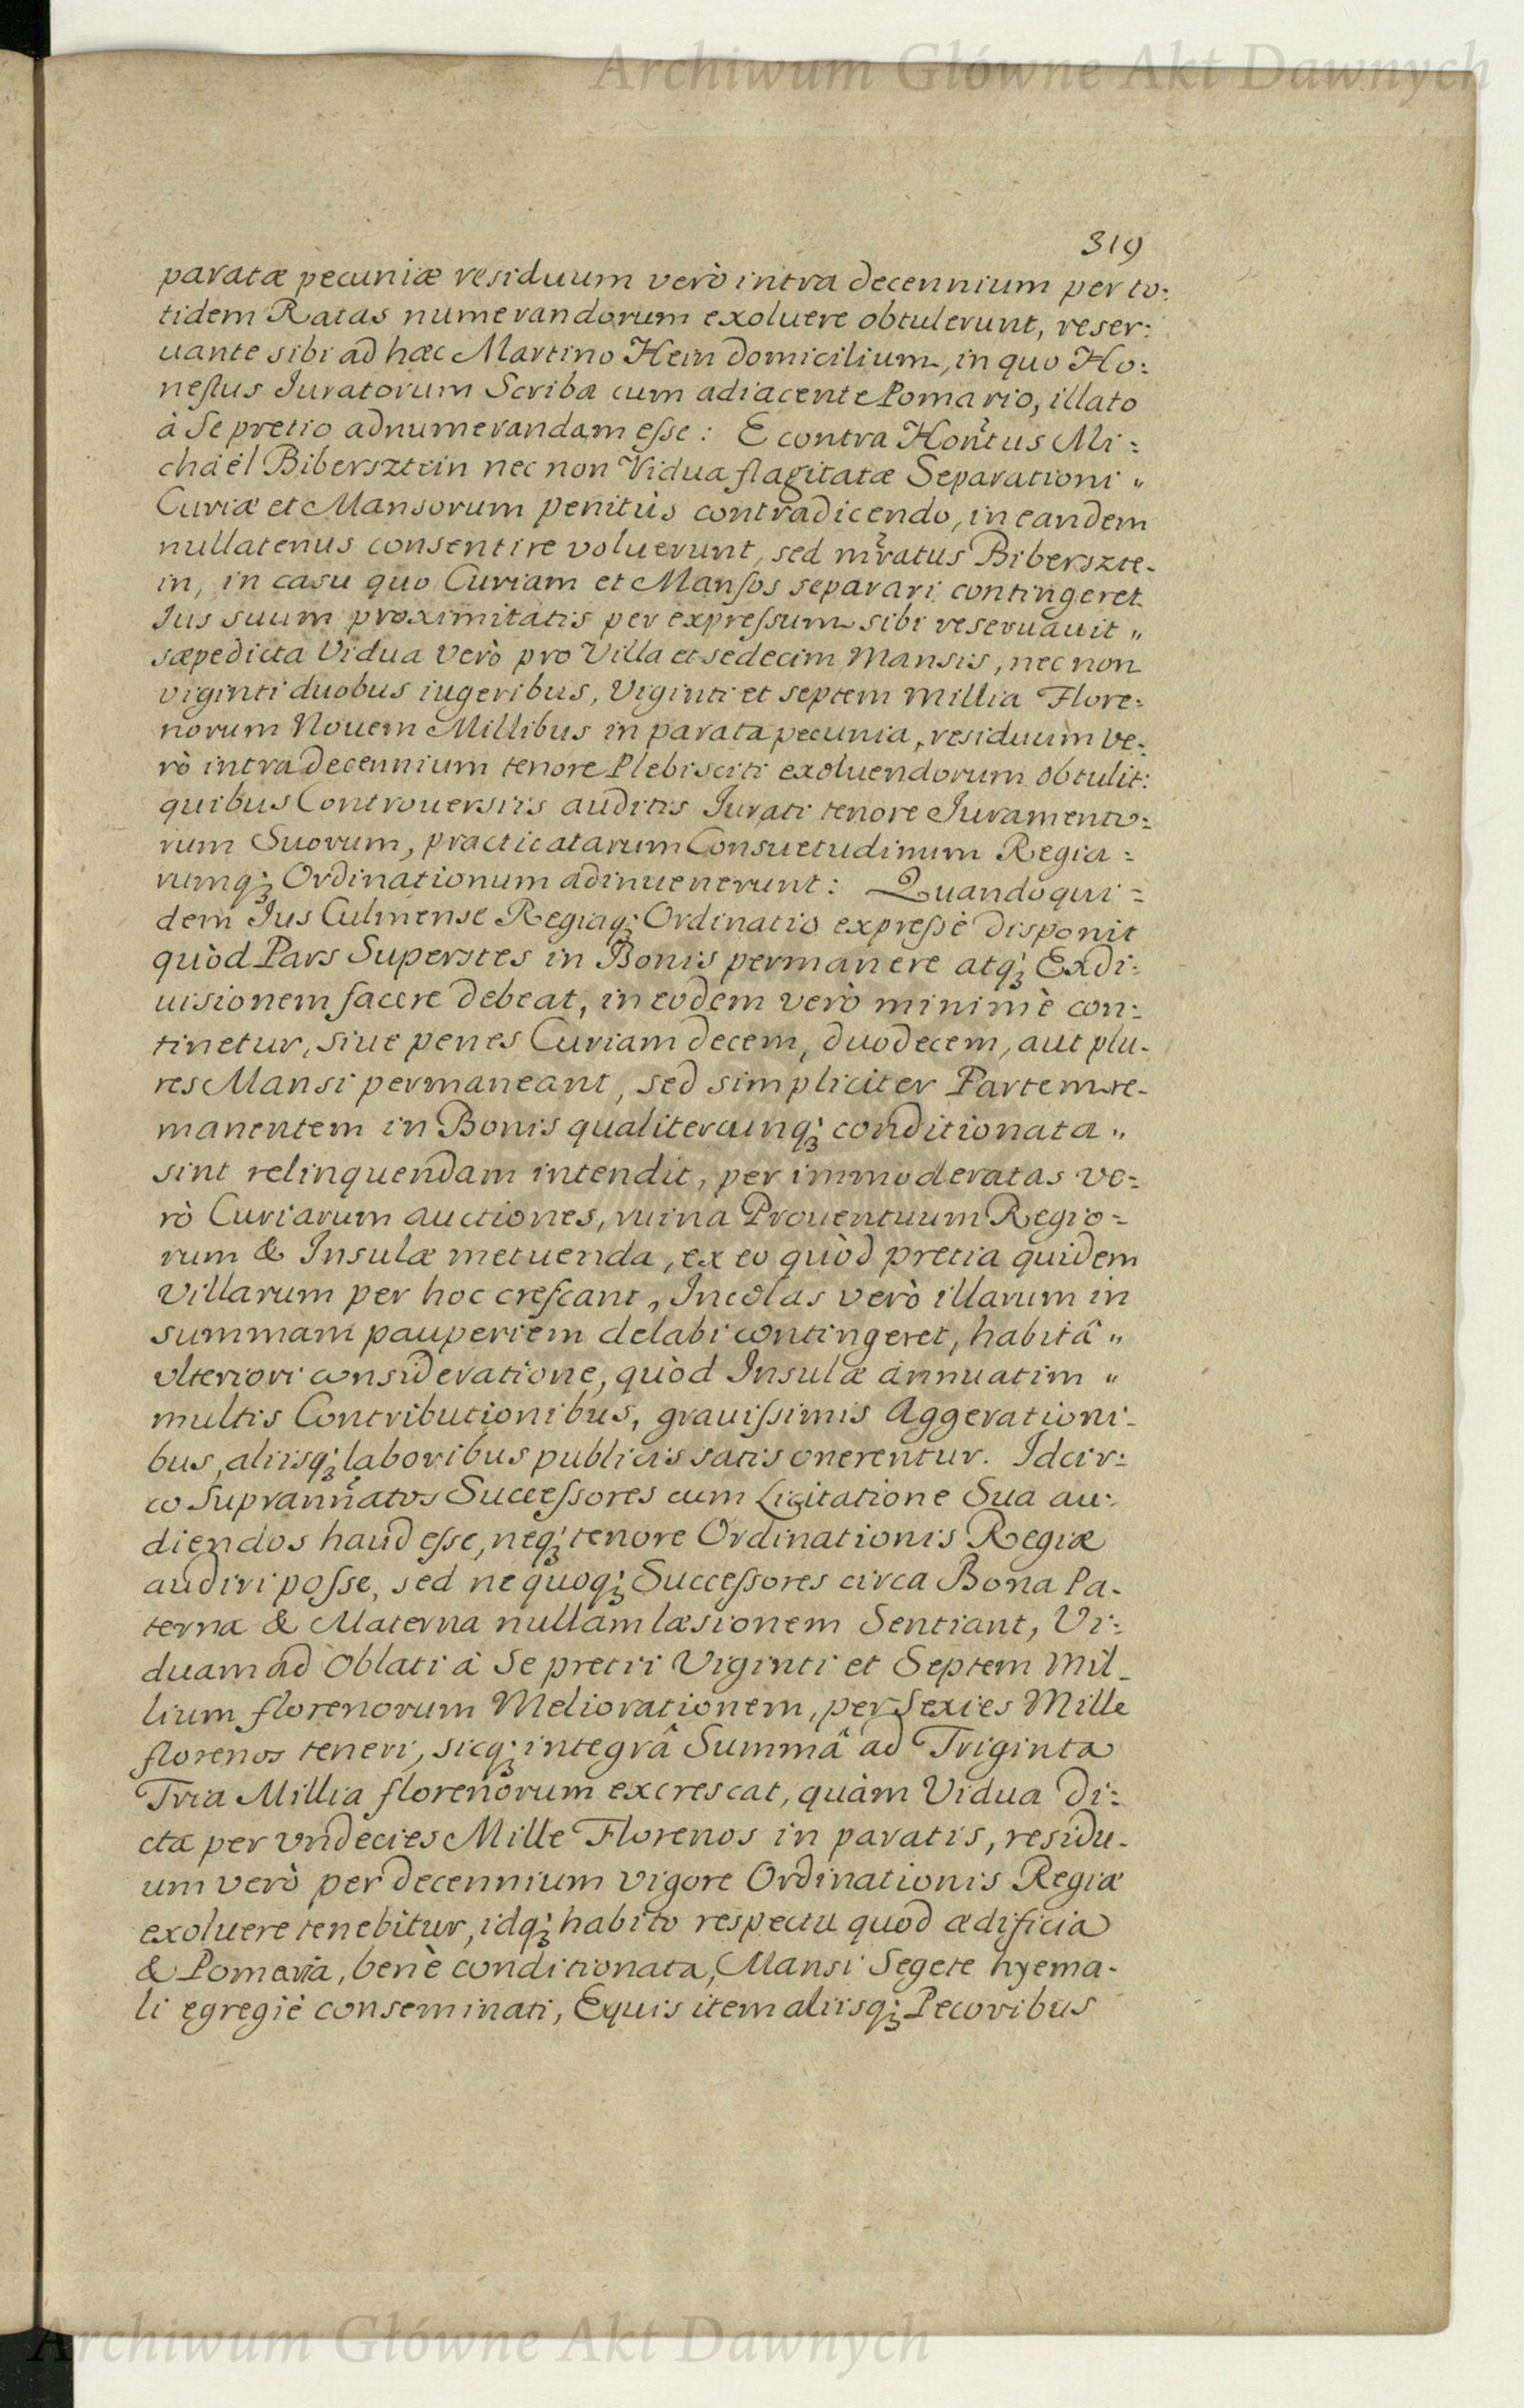 Archiwum Główne Akt Dawnych
319
paratæ pecuniæ residuum verò intra decennium per to:
tidem Ratas numerandorum exoluere obtulerunt, reser:
uante sibi ad hæc Martino Hein domicilium, in quo Ho:
nestus Iuratorum Scriba cum adiacente Pomario, illato
à Se pretio adnumerandam esse: E contra Hontus Mi:
chaël Bibersztein nec non Vidua flagitatæ Separationi "
Curiæ et Mansorum penitùs contradicendo, in eandem
nullatenus consentire voluerunt, sed mratus Biberszte-
in, in casu quo Curiam et Mansos separari contingeret
Ius suum proximitatis per expressum sibi reseruauit "
sæpedicta Vidua verò pro Villa et sedecim Mansis, nec non
viginti duobus iugeribus, Viginti et septem millia Flore:
norum Nouem Millibus in parata pecunia, residuum ve:
rò intra decennium tenore Plebisciti exoluendorum obtulit:
quibus Controuersiis auditis Iurati tenore Iuramento:
rum Suorum, practicatarum Consuetudinum Regia:
rumq; Ordinationum adinuenerunt: Quandoqui:
dem Ius Culmense Regiaq; Ordinatio expressè disponit
quòd Pars Superstes in Bonis permanere atq; Exdi:
uisionem facere debeat, in eodem verò minimè con:
tinetur, siue penes Curiam decem, duodecem, aut plu-
res Mansi permaneant, sed simpliciter Partem re-
manentem in Bonis qualitercunq; conditionata "
sint relinquendam intendit, per immoderatas ve:
rò Curiarum auctiones, ruina Prouentuum Regio:
rum & Insulæ metuenda, ex eo quòd pretia quidem
Villarum per hoc crescant, Incolas verò illarum in
summam pauperiem delabi contingeret, habitâ "
vlteriori consideratione, quòd Insulæ annuatim "
multis Contributionibus, grauissimis Aggerationi-
bus, aliisq; laboribus publicis satis onerentur. Idcir:
co Suprannatos Successores cum Licitatione Sua au:
diendos haud esse, neq; tenore Ordinationis Regiæ
audiri posse, sed ne quoq; Successores circa Bona Pa-
terna & Materna nullam læsionem Sentiant, Vi:
duam ad Oblati à Se pretii Viginti et Septem Mil-
lium florenorum Meliorationem, per Sexies Mille
florenos teneri, sicq; integrâ Summâ ad Triginta
Tria Millia florenorum excrescat, quàm Vidua di:
cta per vndecies Mille Florenos in paratis, residu-
um verò per decennium vigore Ordinationis Regiæ
exoluere tenebitur, idq; habito respectu quòd ædificia
& Pomaria, benè conditionata, Mansi Segete hyema-
li egregiè conseminati, Equis item aliisq; Pecoribus
Archiwum Główne Akt Dawnych